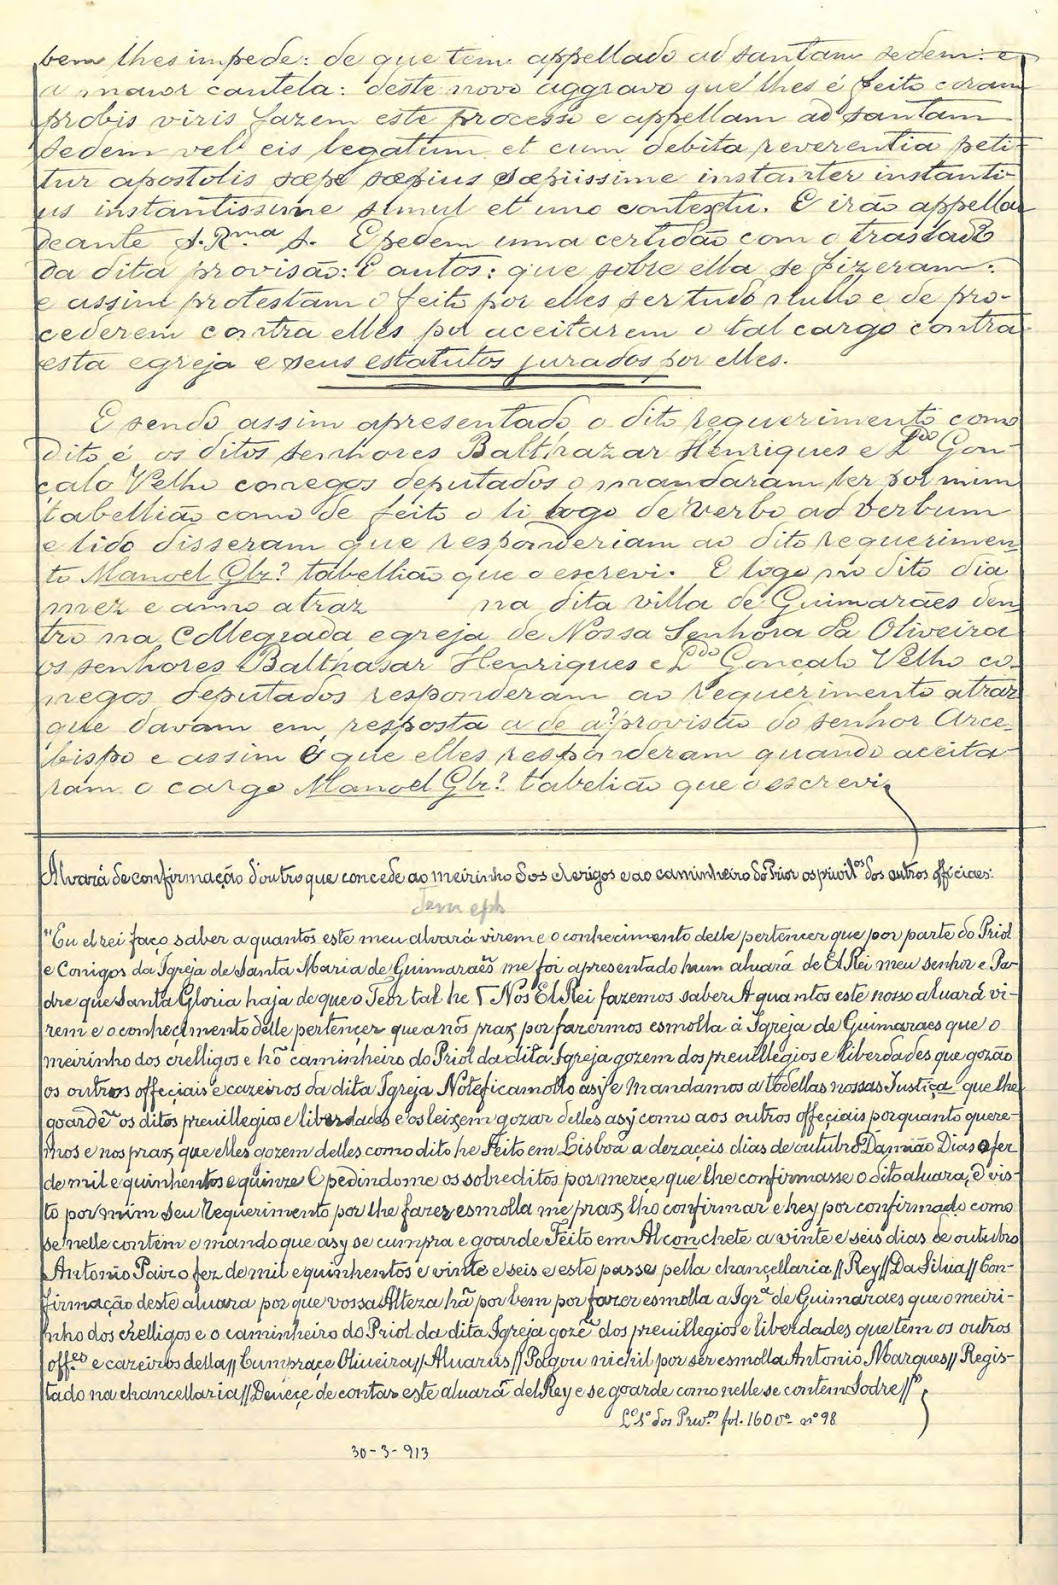 bem lhes impede: de que tem appellado ad santam sedem: e
a maior cautela: deste novo aggravo que lhes é feito coram
probis viris fazem este processo e appellam ad santam
Sedem vel eis legatum et cum debita reverentia peti-
tur apostolis sæpe sæpius sæpiissime instanter instanti-
us instantissime simul et uno contextu. E irão appella
deante S. R.ma S. E pedem uma certidão com o traslado
da dita provisão: E autos: que sobre ella se fizeram:
e assim protestam o feito por elles ser tudo nullo e de pro-
cederem contra elles por aceitarem o tal cargo contra
esta egreja e seus estatutos jurados por elles.
E sendo assim apresentado o dito requerimento como
dito é os ditos senhores Balthazar Henriques e L.do Gon-
çalo Velho conegos deputados o mandaram ler por mim
tabellião como de feito o li logo de verbo ad verbum
e lido disseram que responderiam ao dito requerimen-
to Manoel Glz? tabellião que o escrevi. E logo no dito dia
mez e anno atraz na dita villa de Guimarães den-
tro na Collegiada egreja de Nossa Senhora da Oliveira
os senhores Balthasar Henriques e L.do Gonçalo Velho co-
negos deputados responderam ao requerimento atraz
que davam em resposta a de a? provisão do senhor Arce-
bispo e assim o que elles responderam quando aceita-
ram o cargo Manoel Glz? tabelião que o escrevi
Alvará de confirmação d'outro que concede ao meirinho dos clerigos e ao caminheiro do Prior os privil.os dos outros officiaes:
"Eu el rei faço saber a quantos este meu alvará virem e o conhecimento delle pertencer que por parte do Priol
e Conigos da Igreja de Santa Maria de Guimarães me foi apresentado hum aluará de El Rei meu senhor e Pa-
dre que Santa Gloria haja de que o Teor tal he Nós El Rei fazemos saber A quantos este nosso aluará vi-
rem e o conheçimento delle pertençer que a nós praz por fazermos esmolla á Igreja de Guimaraes que o
meirinho dos crelligos e hõ caminheiro do Priol da dita Igreja gozem dos preuillegios e liberdades que gozão
os outros offeçiais e cazeiros da dita Igreja Noteficamollo asy e mandamos a todellas nossas Justiças que lhe
goardẽ os ditos preuillegios e liberdades e os leixem gozar delles asy como aos outros offeçiais porquanto quere-
mos e nos praz que elles gozem delles como dito he Feito em Lisboa a dezaçeis dias de outubro Damião Dias o fez
de mil e quinhentos e quinze E pedindome os sobreditos por merçe que lhe confirmasse o dito aluara, E vis-
to por mim seu Requerimento por lhe fazer esmolla me praz lho confirmar e hey por confirmado como
se nelle contem e mando que asy se cumpra e goarde Feito em Alconchete a vinte e seis dias de outubro
Antonio Paivo fez de mil e quinhentos e vinte e seis e este passe pella chançellaria // Rey // Da Silua // Con-
firmação deste aluara por que vossa Alteza há por bem por fazer esmolla a Igr.ª de Guimaraes que o meiri-
nho dos crelligos e o caminheiro do Priol da dita Igreja gozẽ dos preuillegios e liberdades que tem os outros
off.es e cazeiros della // Cumprace Oliueira // Aluarus // Pagou nichil por ser esmolla Antonio Marques // Regis-
tado na chancellaria // Deueçe de contar este aluará del Rey e se goarde como nelle se contem Sodre //"
L.º 1º dos Priv.os fol. 160 vº nº 98
30-3-913